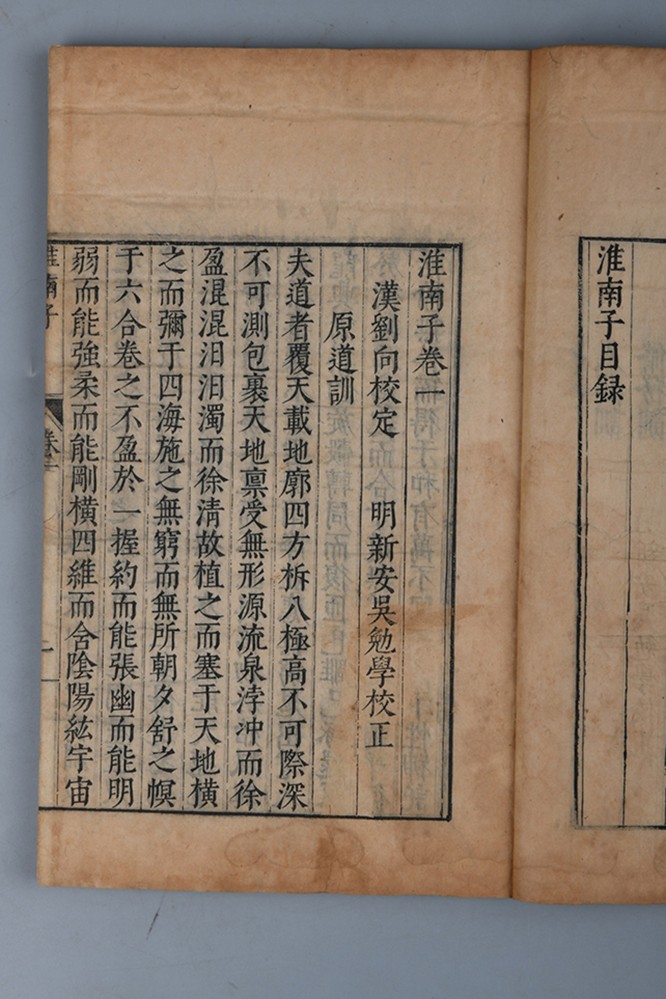 淮南子目録
淮南子卷一
漢劉向校定 明新安吳勉學校正
原道訓
夫道者覆天載地廓四方柝八極高不可際深
不可測包裹天地禀受無形源流泉浡冲而徐
盈混混汩汩濁而徐清故植之而塞于天地橫
之而彌于四海施之無窮而無所朝夕舒之幎
于六合卷之不盈於一握約而能張幽而能明
弱而能強柔而能剛橫四維而含陰陽紘宇宙
淮南子
卷一
一